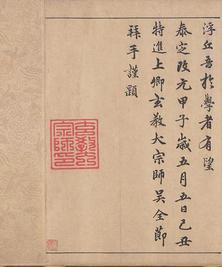 浮丘吾於學者有望
泰定改元甲子歲五月五日己丑
特進上卿玄教大宗師吳全節
拜手謹題
玄教大宗師印